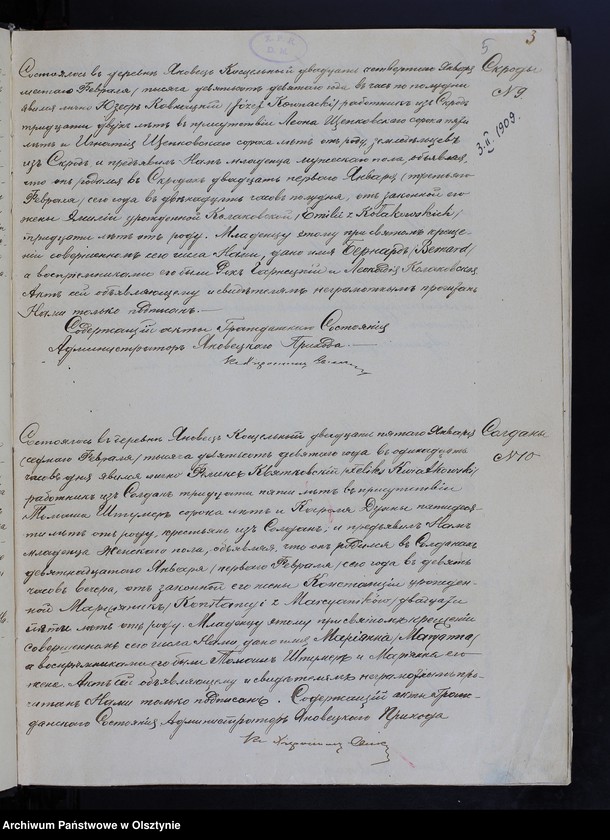 5 3
Состоялось въ деревнѣ Яновецъ Косцельный двадцать четвертаго Января
шестаго Февраля/ тысяча девятьсотъ девятаго года въ часъ по полудни
явился лично Юзефъ Ковнацкій /Józef Kownacki/ работникъ изъ Скродъ
тридцати двухъ лѣтъ въ присутствіи Леона сорока пяти
лѣтъ и Игнатія сорока лѣтъ отъ роду, земледѣльцевъ
изъ Скродъ и предъявилъ Намъ младенца мужескаго пола, объявляя,
что онъ родился въ Скродахъ двадцать перваго Января /третьяго
Февраля/ сего года въ двѣнадцать часовъ полудня, отъ законной его
жены Эмиліи урожденной Колаковской /Emilii z Kołakowskich/
тридцати лѣтъ отъ роду. Младенцу этому при святомъ креще-
ніи совершенномъ сего числа Нами, дано имя Бернардъ /Bernard/
а воспріемниками его были и Леокадія Колаковская
Актъ сей объявляющему и свидѣтелямъ неграмотнымъ прочитанъ
Нами только подписанъ.
Содержащій акты Гражданскаго Состоянія
Администраторъ Яновецкаго Прихода
Скроды
№ 9.
3.II 1909.
Состоялось въ деревнѣ Яновецъ Косцельный двадцать пятаго Января
/седьмаго Февраля/ тысяча девятьсотъ девятаго года въ одинадцать
часовъ дня явился лично Феликсъ Квятковскій /Feliks Kwiatkowski/
работникъ изъ Солданъ тридцати пяти лѣтъ въ присутствіи
Томаша Штумеръ сорока лѣтъ и пятидеся-
ти лѣтъ отъ роду, крестьянъ изъ Солданъ, и предъявилъ Намъ
младенца женскаго пола, объявляя, что онъ родился въ Солданахъ
девятнадцатаго Января /перваго Февраля/ сего года въ девять
часовъ вечера, отъ законной его жены Констанціи урожден-
ной Марцянякъ /Konstancyi z Marcyaniaków/ двадцати
пяти лѣтъ отъ роду. Младенцу этому при святомъ крещеніи
совершенномъ сего числа Нами, дано имя Маріанна /Maryanna/
а воспріемниками его были Томашъ Штумеръ и Маріанна его
жена. Актъ сей объявляющему и свидѣтелямъ неграмотнымъ про-
читанъ Нами только подписанъ. Содержащій акты Граж-
данскаго Состоянія Администраторъ Яновецкаго Прихода
Солданы
№ 10
Archiwum Państwowe w Olsztynie